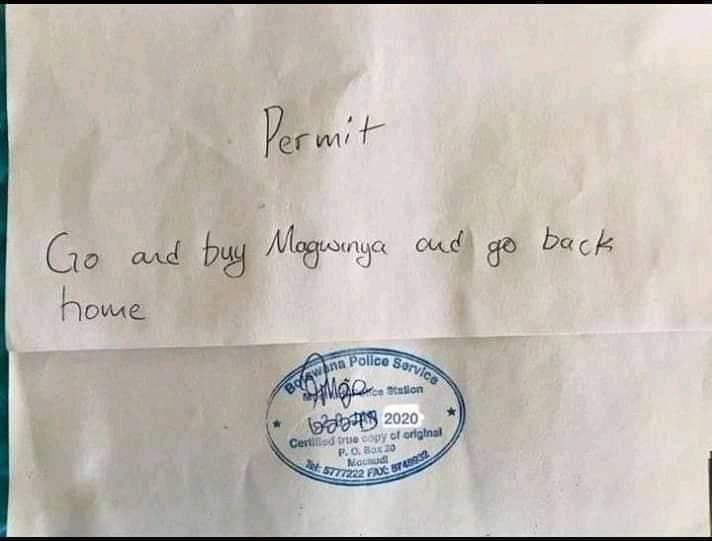 Permit
Go and buy Magwinya and go back
home
Botswana Police Service
Police Station
2020
Certified true copy of original
P. O. Box 20
Mochudi
Tel: 5777222 FAX: